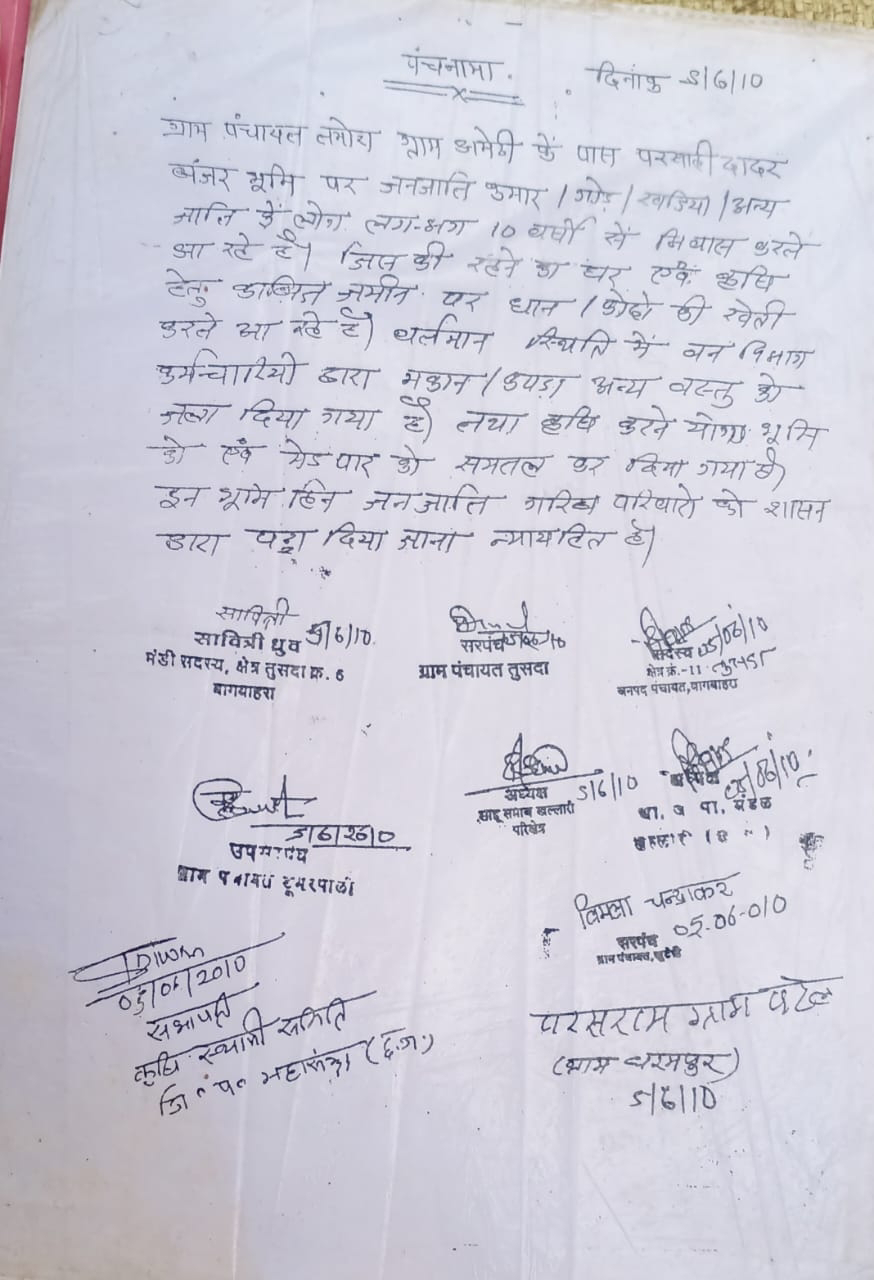 पंचनामा. दिनांक 5/6/10
ग्राम पंचायत तमोरा ग्राम अमेठी के पास परसाही दादर
बंजर भूमि पर जनजाति कमार / गोड़ / खड़िया / अन्य
जाति के लोग लग-भग 10 वर्षो से निवास करते
आ रहे है। जिस की रहने का घर एवं कृषि
हेतु काबिज जमीन पर धान / कोदो की खेती
करते आ रहे है। वर्तमान स्थिति में वन विभाग
कर्मचारियो द्वारा मकान / कपड़ा अन्य वस्तु को
जला दिया गया है। तथा कृषि करने योग्य भूमि
को एवं मेड पार को समतल कर दिया गया है।
इन भूमि हिन जनजाति गरिब परिवारो को शासन
द्वारा पट्टा दिया जाना न्यायहित है।
सावित्री
सावित्री ध्रुव 5/6/10
मंडी सदस्य, क्षेत्र तुसदा क्र. 6
बागबाहरा
सरपंच
ग्राम पंचायत तुसदा
सदस्य 05/06/10
क्षेत्र क्रं.-11 तुसदा
जनपद पंचायत, बागबाहरा
अध्यक्ष 5/6/10
साहू समाज खल्लारी
परिक्षेत्र
05/06/10
भा. ज. पा. मंडल
5/6/2010
उपसरपंच
ग्राम पंचायत टुमरपाली
विमला चन्द्राकर
सरपंच 05-06-010
ग्राम पंचायत,
DIWAN
05/06/2010
सभापति
कृषि स्थायी समिति
जि॰ पं॰ महासमुंद (छ.ग.)
परसराम ग्राम पटेल
(ग्राम धरमपुर)
5/6/10